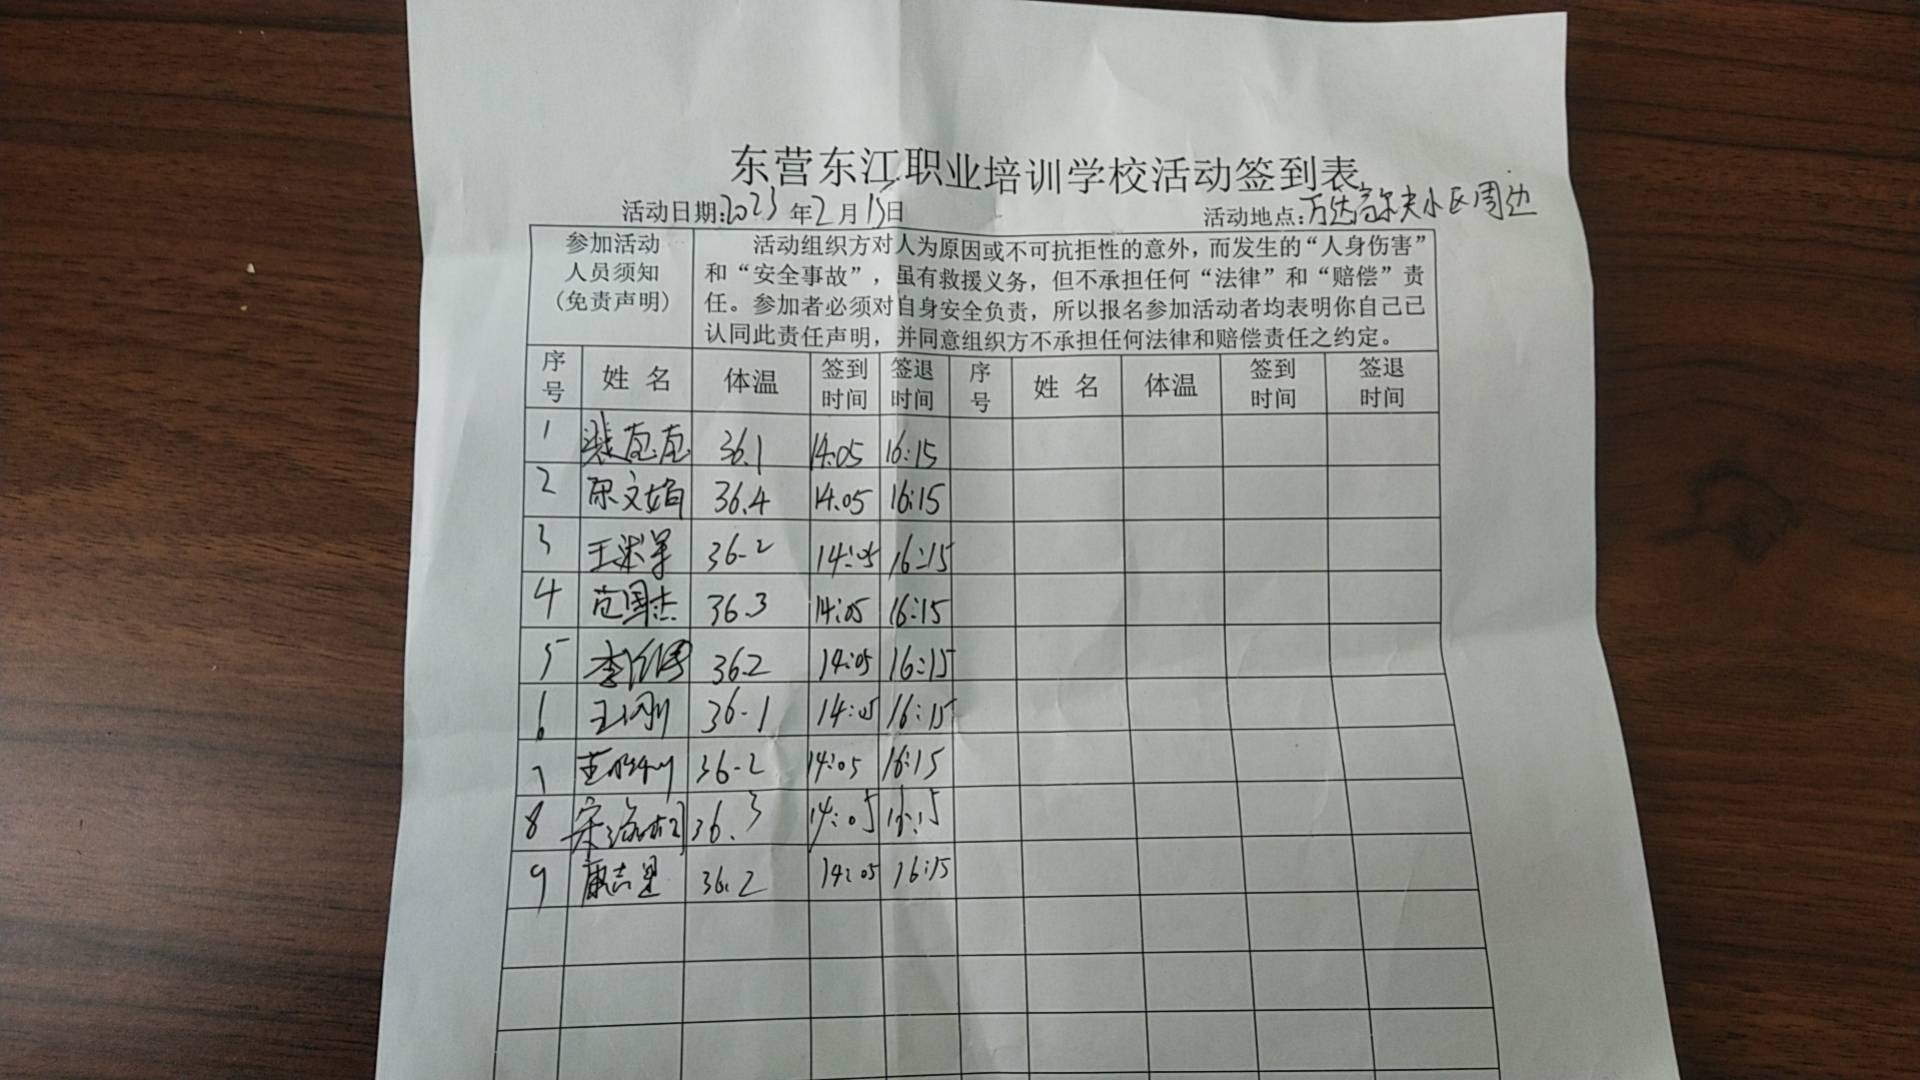 东营东江职业培训学校活动签到表
活动日期:2023年2月15日 活动地点:万达高尔夫小区周边
参加活动
人员须知
(免责声明)
活动组织方对人为原因或不可抗拒性的意外，而发生的“人身伤害”
和“安全事故”，虽有救援义务，但不承担任何“法律”和“赔偿”责
任。参加者必须对自身安全负责，所以报名参加活动者均表明你自己己
认同此责任声明，并同意组织方不承担任何法律和赔偿责任之约定。
序号 姓名 体温 签到时间 签退时间 序号 姓名 体温 签到时间 签退时间
1 36.1 14:05 16:15
2 36.4 14:05 16:15
3 王 36.2 14:05 16:15
4 范国杰 36.3 14:05 16:15
5 李 36.2 14:05 16:15
6 王刚 36.1 14:05 16:15
7 36.2 14:05 16:15
8 宋海 36.3 14:05 16:15
9 康志 36.2 14:05 16:15